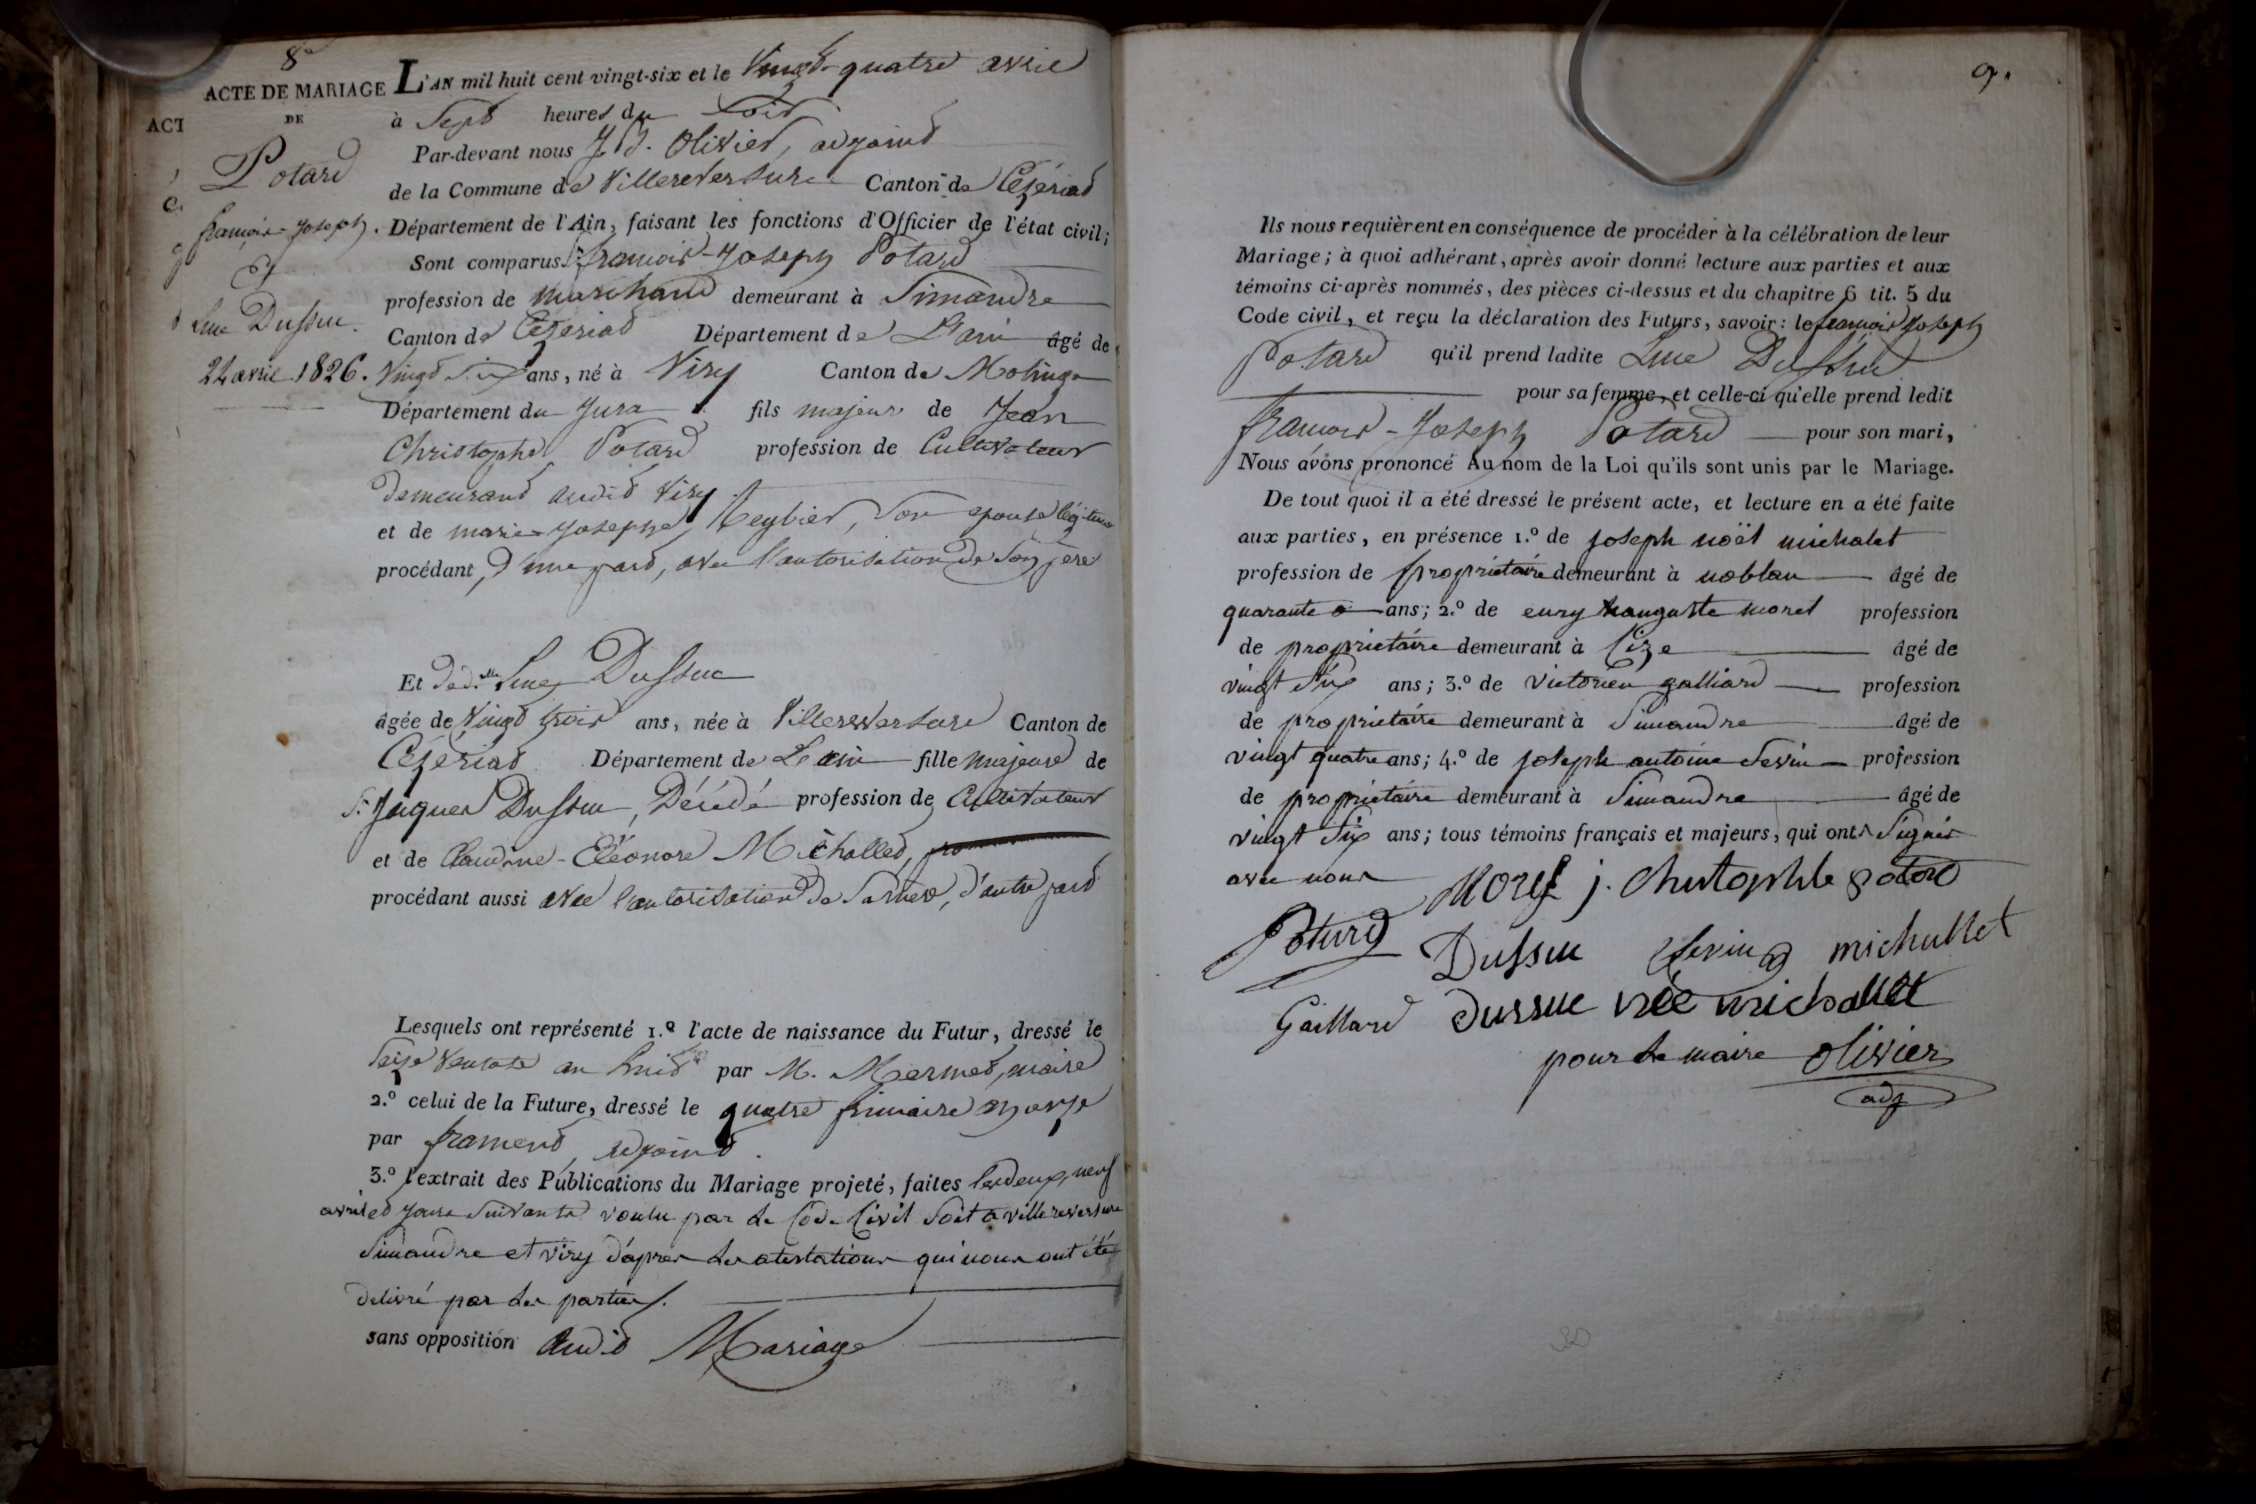 8e
ACTE DE MARIAGE
DE
ACT
Potard
françois-Joseph.
Et
Luce Dussuc.
24 avril 1826.
L'AN mil huit cent vingt-six et le Vingt-quatre avril
à Sept heures du Soir
Par-devant nous J. Olivier, adjoint
de la Commune de Villereversure Canton de Cézériat
Département de l'Ain, faisant les fonctions d'Officier de l'état civil;
Sont comparus françois-Joseph Potard
profession de marchand demeurant à Simandre
Canton de Cézériat Département de L'ain âgé de
Vingt Six ans, né à Viry Canton de Molinge
Département du Jura fils majeur de Jean
Christophe Potard profession de Cultivateur
demeurant audit Viry
et de marie-josephe Meynier, Son epouse légitime
procédant d'une part, avec l'autorisation de Son père
Et dédlle Luce Dussuc
âgée de Vingt trois ans, née à Villereversure Canton de
Cézériat Département de L'ain fille majeure de
Sr Jaques Dussuc, Décédé profession de Cultivateur
et de Claudine-Eléonore Michallet,
procédant aussi avec l'autorisation de Sa mere, d'autre part
Lesquels ont représenté 1.º l'acte de naissance du Futur, dressé le
Seize Ventose an huit par M. Mermet, maire
2.º celui de la Future, dressé le quatre frimaire an onze
par framend, adjoint.
3.º l'extrait des Publications du Mariage projeté, faites les deux, neuf
avril et jours Suivants voulu par le Code Civil Soit a villereversure
Simandre et viry d'aprer les atestations qui nous ont été
delivré par les parties.
sans opposition audit Mariage
9.
Ils nous requièrent en conséquence de procéder à la célébration de leur
Mariage; à quoi adhérant, après avoir donné lecture aux parties et aux
témoins ci-après nommés, des pièces ci-dessus et du chapitre 6 tit. 5 du
Code civil, et reçu la déclaration des Futurs, savoir: le françois Joseph
Potard qu'il prend ladite Luce Dussuc
pour sa femme, et celle-ci qu'elle prend ledit
françois-Joseph Potard pour son mari,
Nous avons prononcé Au nom de la Loi qu'ils sont unis par le Mariage.
De tout quoi il a été dressé le présent acte, et lecture en a été faite
aux parties, en présence 1.º de joseph noël michalet
profession de propriétaire demeurant à noblan âgé de
quarante ans; 2.º de eury hauguste morel profession
de propriétaire demeurant à Cize âgé de
vingt Six ans; 3.º de Victorien galliard profession
de propriétaire demeurant à Simandre âgé de
vingt quatre ans; 4.º de joseph antoine Sevin profession
de propriétaire demeurant à Simandre âgé de
vingt Six ans; tous témoins français et majeurs, qui ont Signés
avec nous Morel j. christophle potard
Potard Dussuc Sevin michallet
Gaillard dussuc née michallet
pour le maire olivier
adj
30